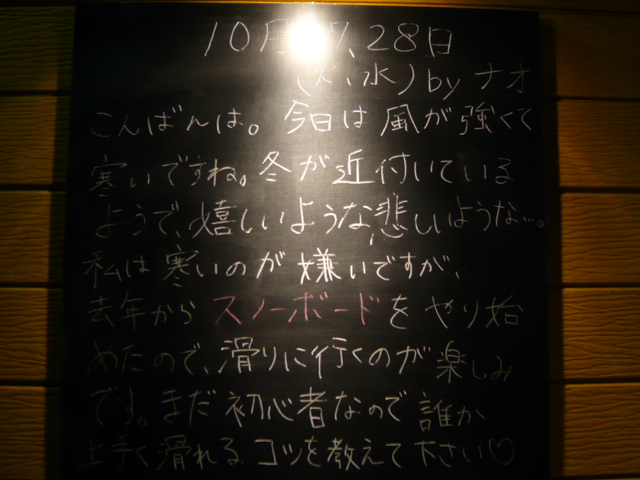 10月27、28日
(火、水) by ナオ
こんばんは。今日は風が強くて
寒いですね。冬が近付いている
ようで、嬉しいような、悲しいような…。
私は寒いのが嫌いですが、
去年からスノーボードをやり始
めたので、滑りに行くのが楽しみ
です。まだ初心者なので誰か
上手く滑れるコツを教えて下さい♡